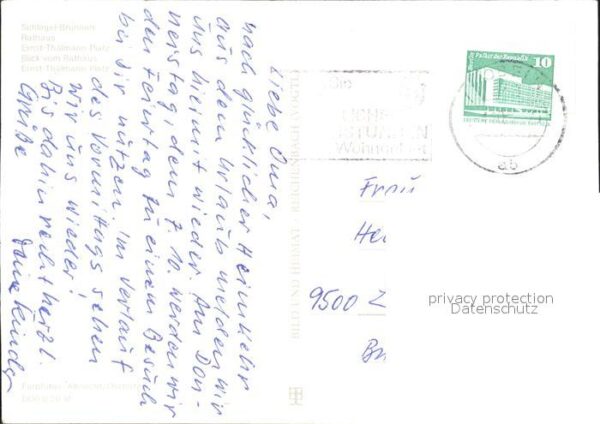 Schlager-Brunnen
Rathaus
Ernst-Thälmann Platz
Blick vom Rathaus
Ernst-Thälmann Platz
Liebe Oma,
nach glücklicher Heimkehr
aus dem Urlaub melden wir
uns hiermit wieder. Am Don-
nerstag, dem 7. 10. werden wir
den Feiertag zu einem Besuch
bei dir nutzen. Im Verlauf
des Vormittags sehen
wir uns wieder!
Bis dahin recht herzl.
Grüße Deine Kinder
BILD UND HEIMAT REICHENBACH (VOGTL)
Berlin, Palast der Republik
10
DEUTSCHE DEMOKRATISCHE REPUBLIK
STUNDEN
Wohngebiet
ab
Frau
He
9500 Z
privacy protection
Datenschutz